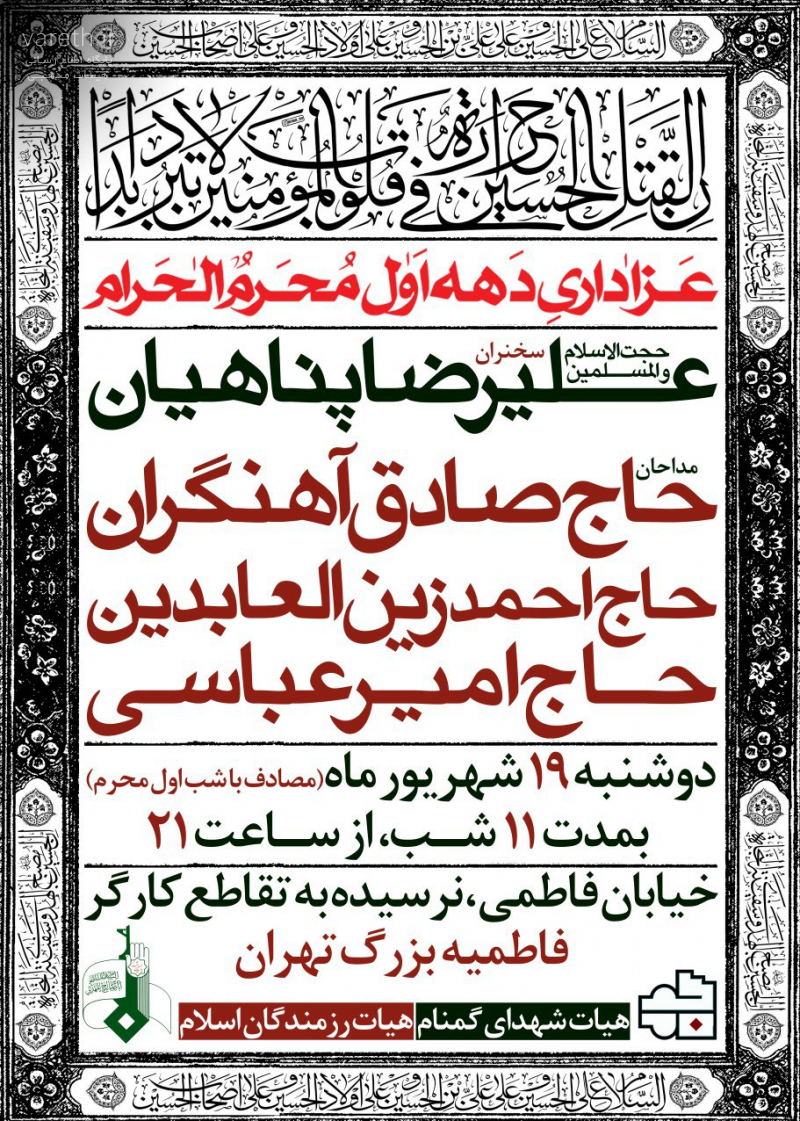 السلام علی الحسین و علی علی بن الحسین و علی اولاد الحسین و علی اصحاب الحسین
ان لقتل الحسین حرارة فی قلوب المؤمنین لا تبرد ابدا
عَزاداریِ دَهه اَوَل مُحَرَمُ الحَرام
سخنران
حجت‌الاسلام والمسلمین
علیرضا پناهیان
مداحان
حاج صادق آهنگران
حاج احمد زین العابدین
حاج امیر عباسی
دوشنبه ۱۹ شهریور ماه (مصادف با شب اول محرم)
بمدت ۱۱ شب، از ساعت ۲۱
خیابان فاطمی، نرسیده به تقاطع کارگر
فاطمیه بزرگ تهران
هیات شهدای گمنام هیات رزمندگان اسلام
السلام علی الحسین و علی علی بن الحسین و علی اولاد الحسین و علی اصحاب الحسین